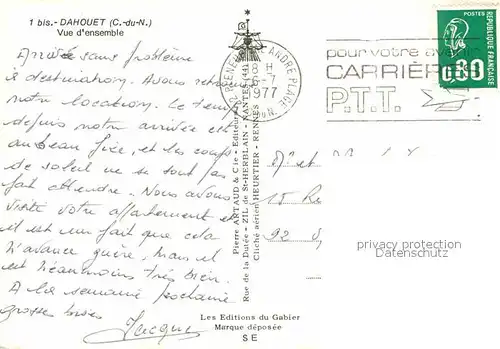 1 bis.- DAHOUET (C.-du-N.)
Vue d'ensemble
Arrivée sans problème
à destination. Avons retrouvé
notre location. Le temps
depuis notre arrivée est
au beau fixe, et les coups
de soleil ne se sont pas
fait attendre. Nous avons
visité votre appartement et
il est un fait que cela
n'avance guère, mais il
est néanmoins très bien.
A la semaine prochaine
grosse bises
Jacques
Pierre ARTAUD & Cie - Editeurs
Rue de la Dutée - ZIL de St-HERBLAIN - NANTES (44)
Cliché aérien HEURTIER - RENNES
Les Editions du Gabier
Marque déposée
SE
ANDRE PLAGE
H
6-7
1977
pour votre
CARRIÈRE
P.T.T.
POSTES
REPUBLIQUE FRANÇAISE
0,80
et
15
92
privacy protection
Datenschutz